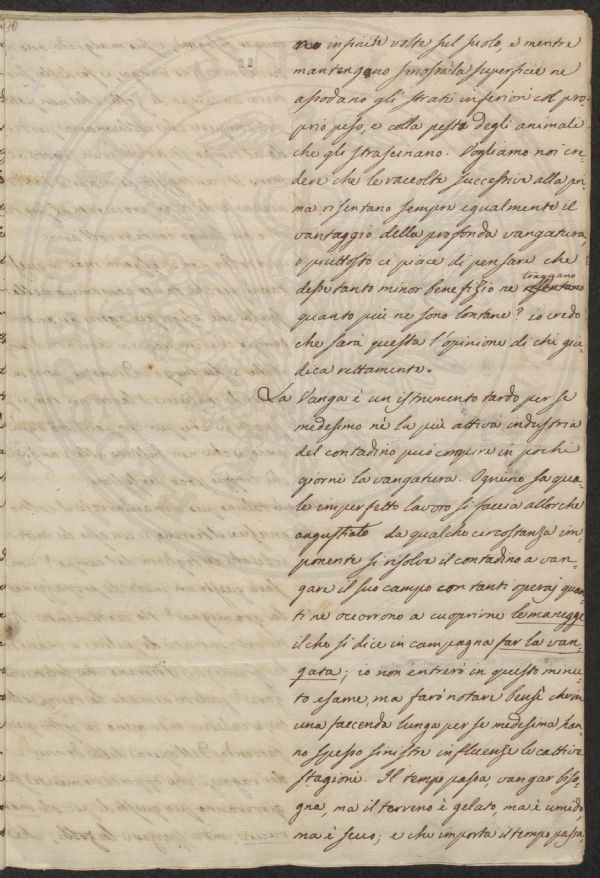 22
no infinite volte sul suolo, e mentre
mantengono smossa la superficie ne
assodano gli strati inferiori col pro=
prio peso, e colla pesta degli animali
che gli strascinano. Vogliamo noi cre=
dere che le raccolte successive alla pri=
ma risentano sempre egualmente il
vantaggio della profonda vangatura,
o piuttosto ci piace di pensare che
traggano
desse tanto minor benefizio ne
quanto più ne sono lontane? io credo
che sarà questa l'opinione di chi giu=
dica rettamente.
La Vanga è un istrumento tardo per se
medesimo nè la più attiva industria
del contadino può compire in pochi
giorni la vangatura. Ognuno sa qua=
le imperfetto lavoro si faccia allorche
angustiato da qualche circostanza im=
ponente si risolve il contadino a van=
gare il suo campo con tanti operaj quan=
ti ne occorrono a cuoprirne le maregge
il che si dice in campagna far la van=
gata; io non entrerò in questo minu=
to esame, ma farò notare bensì che in
una faccenda lunga per se medesima han=
no spesso sinistre influenze le cattive
stagioni. Il tempo passa, vangar biso=
gna, ma il terreno è gelato, ma è umido,
ma è secco; e che importa il tempo passa,